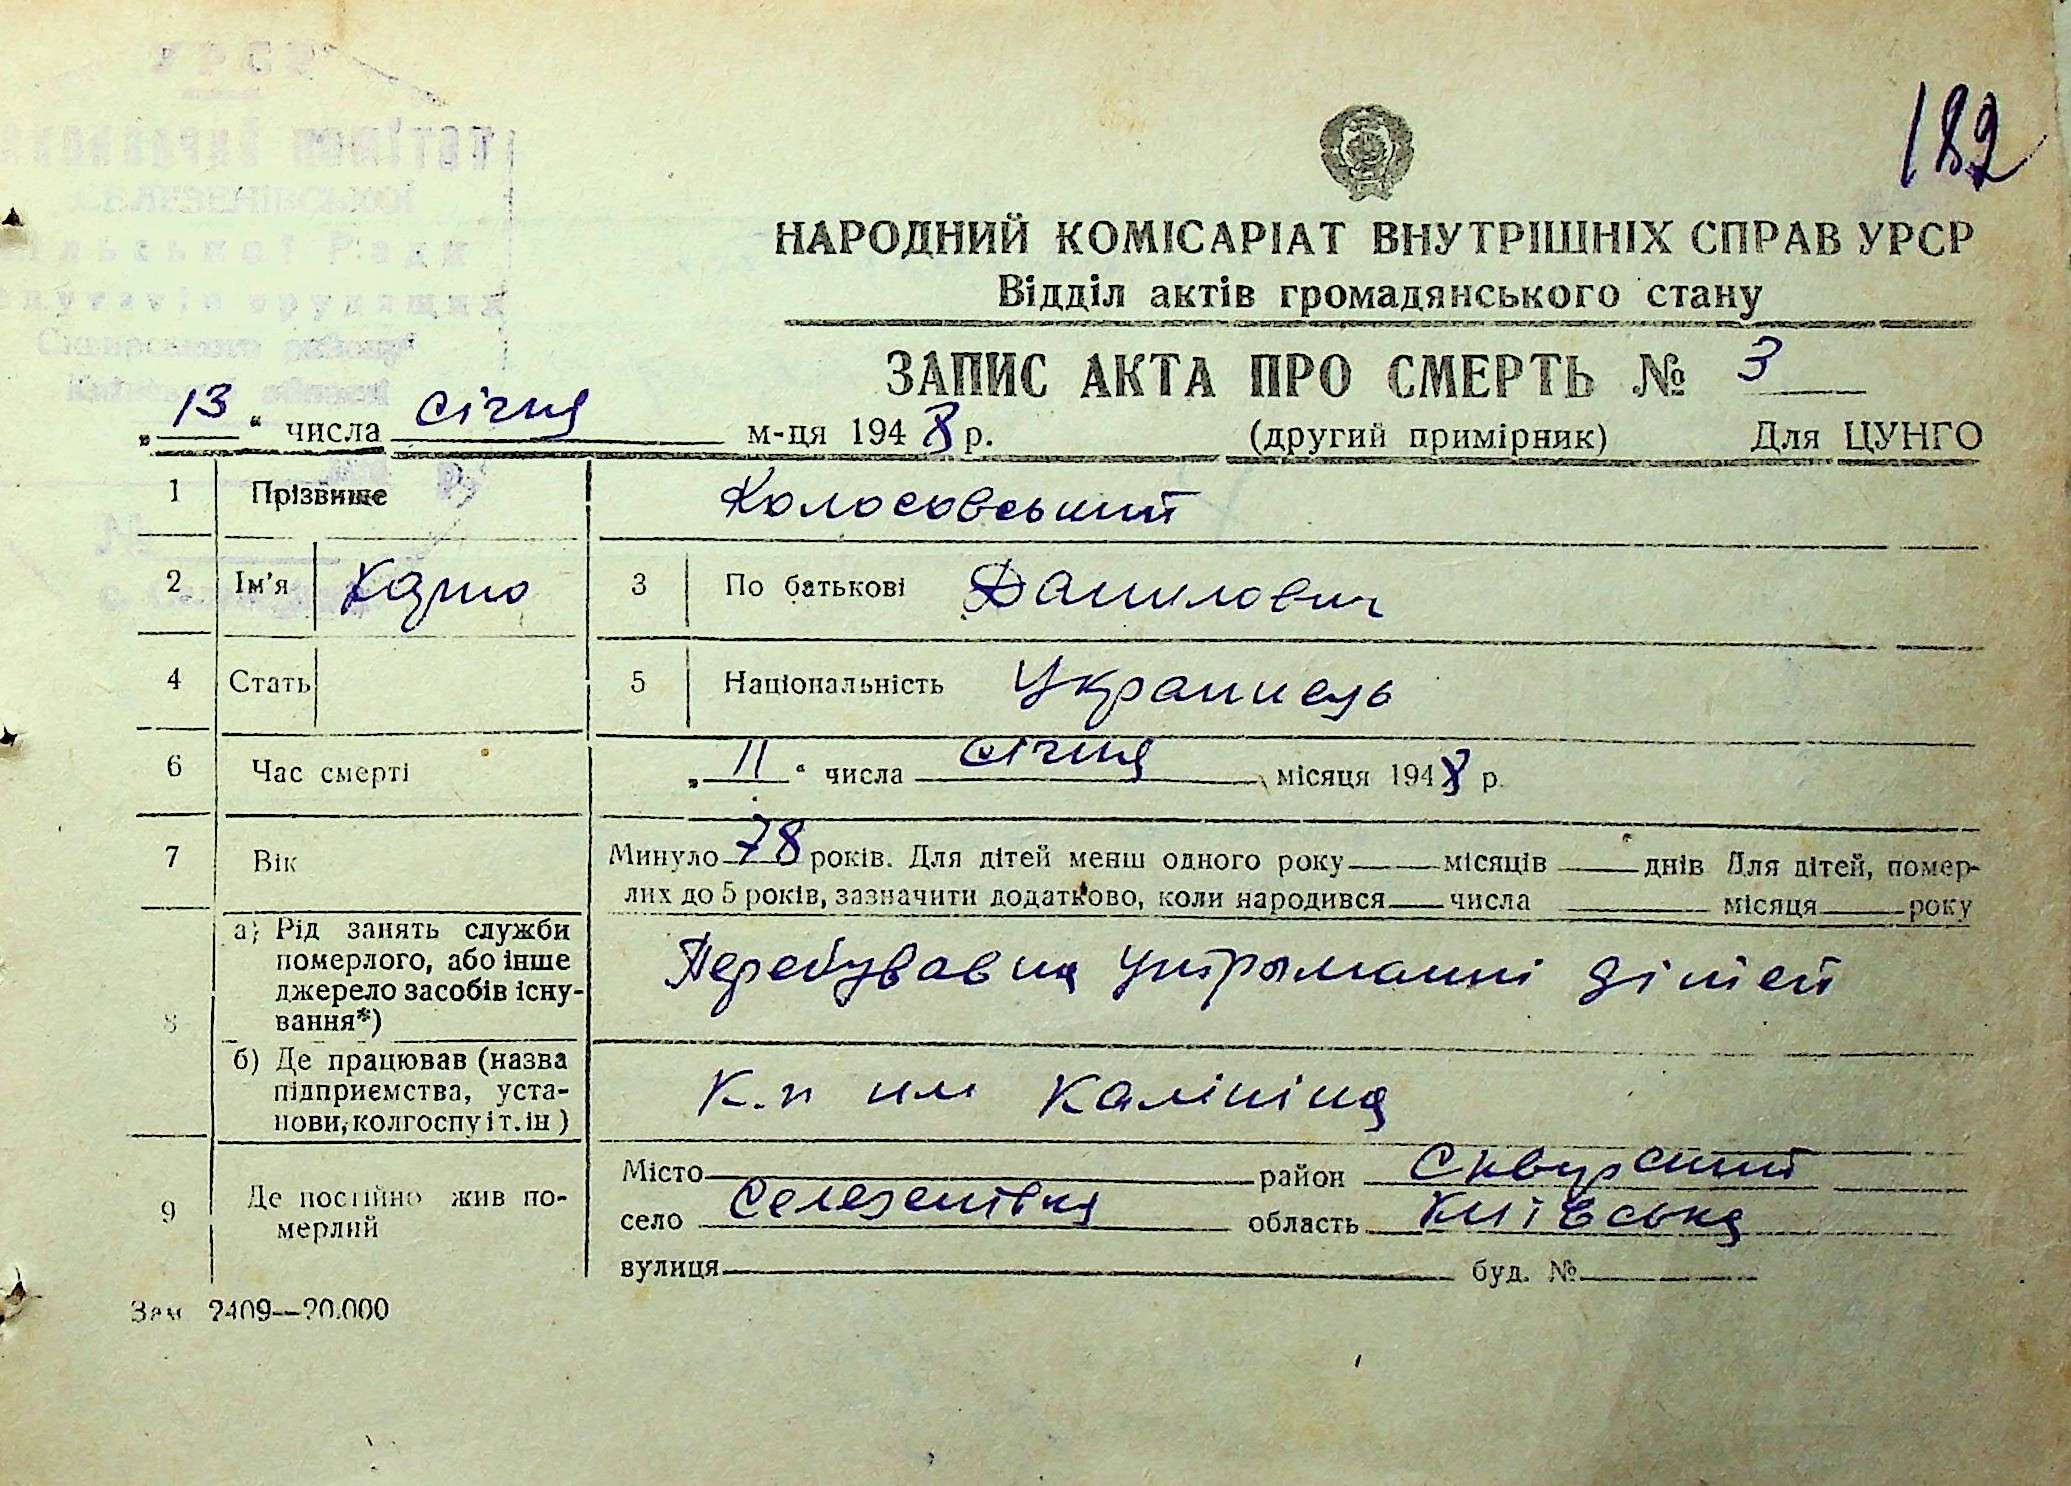 УРСР
виконавчий комітет
СЕЛЕЗЕНІВСЬКОЇ
сільської Ради
депутатів трудящих
Сквирського району
Київської області
182
НАРОДНИЙ КОМІСАРІАТ ВНУТРІШНІХ СПРАВ УРСР
Відділ актів громадянського стану
ЗАПИС АКТА ПРО СМЕРТЬ № 3
„13“ числа січня м-ця 1948 р. (другий примірник) Для ЦУНГО
1 Прізвище Колосовський
2 Ім'я Карпо 3 По батькові Данилович
4 Стать 5 Національність Украинець
6 Час смерті „11“ числа січня місяця 1948 р.
7 Вік Минуло 78 років. Для дітей менш одного року місяців днів Для дітей, помер-
лих до 5 років, зазначити додатково, коли народився числа місяця року
8 а) Рід занять служби
померлого, або інше
джерело засобів існу-
вання*)
Перебував на утрыманні дітей
б) Де працював (назва
підприємства, уста-
нови, колгоспу і т. ін)
К.п им Калініна
9 Де постійно жив по-
мерлий
Місто район Сквирский
село Селезенівка область Київська
вулиця буд. №
Зам 2409—20.000